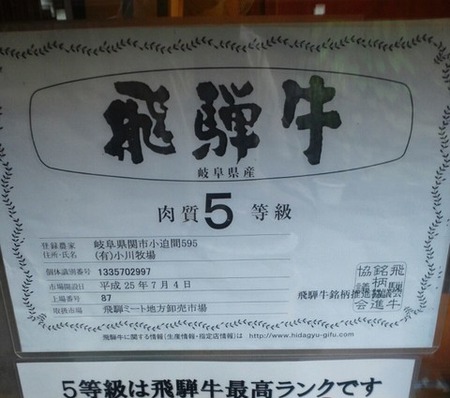 飛騨牛
岐阜県産
肉質5等級
登録農家 岐阜県関市小迫間595
住所・氏名 (有)小川牧場
個体識別番号 1335702997
市場開設日 平成25年7月4日
上場番号 87
取扱市場 飛騨ミート地方卸売市場
飛騨牛銘柄推進協議会
飛騨牛銘柄推進協議会
飛騨牛に関する情報(生産情報・指定店情報)は http://www.hidagyu-gifu.com
5等級は飛騨牛最高ランクです